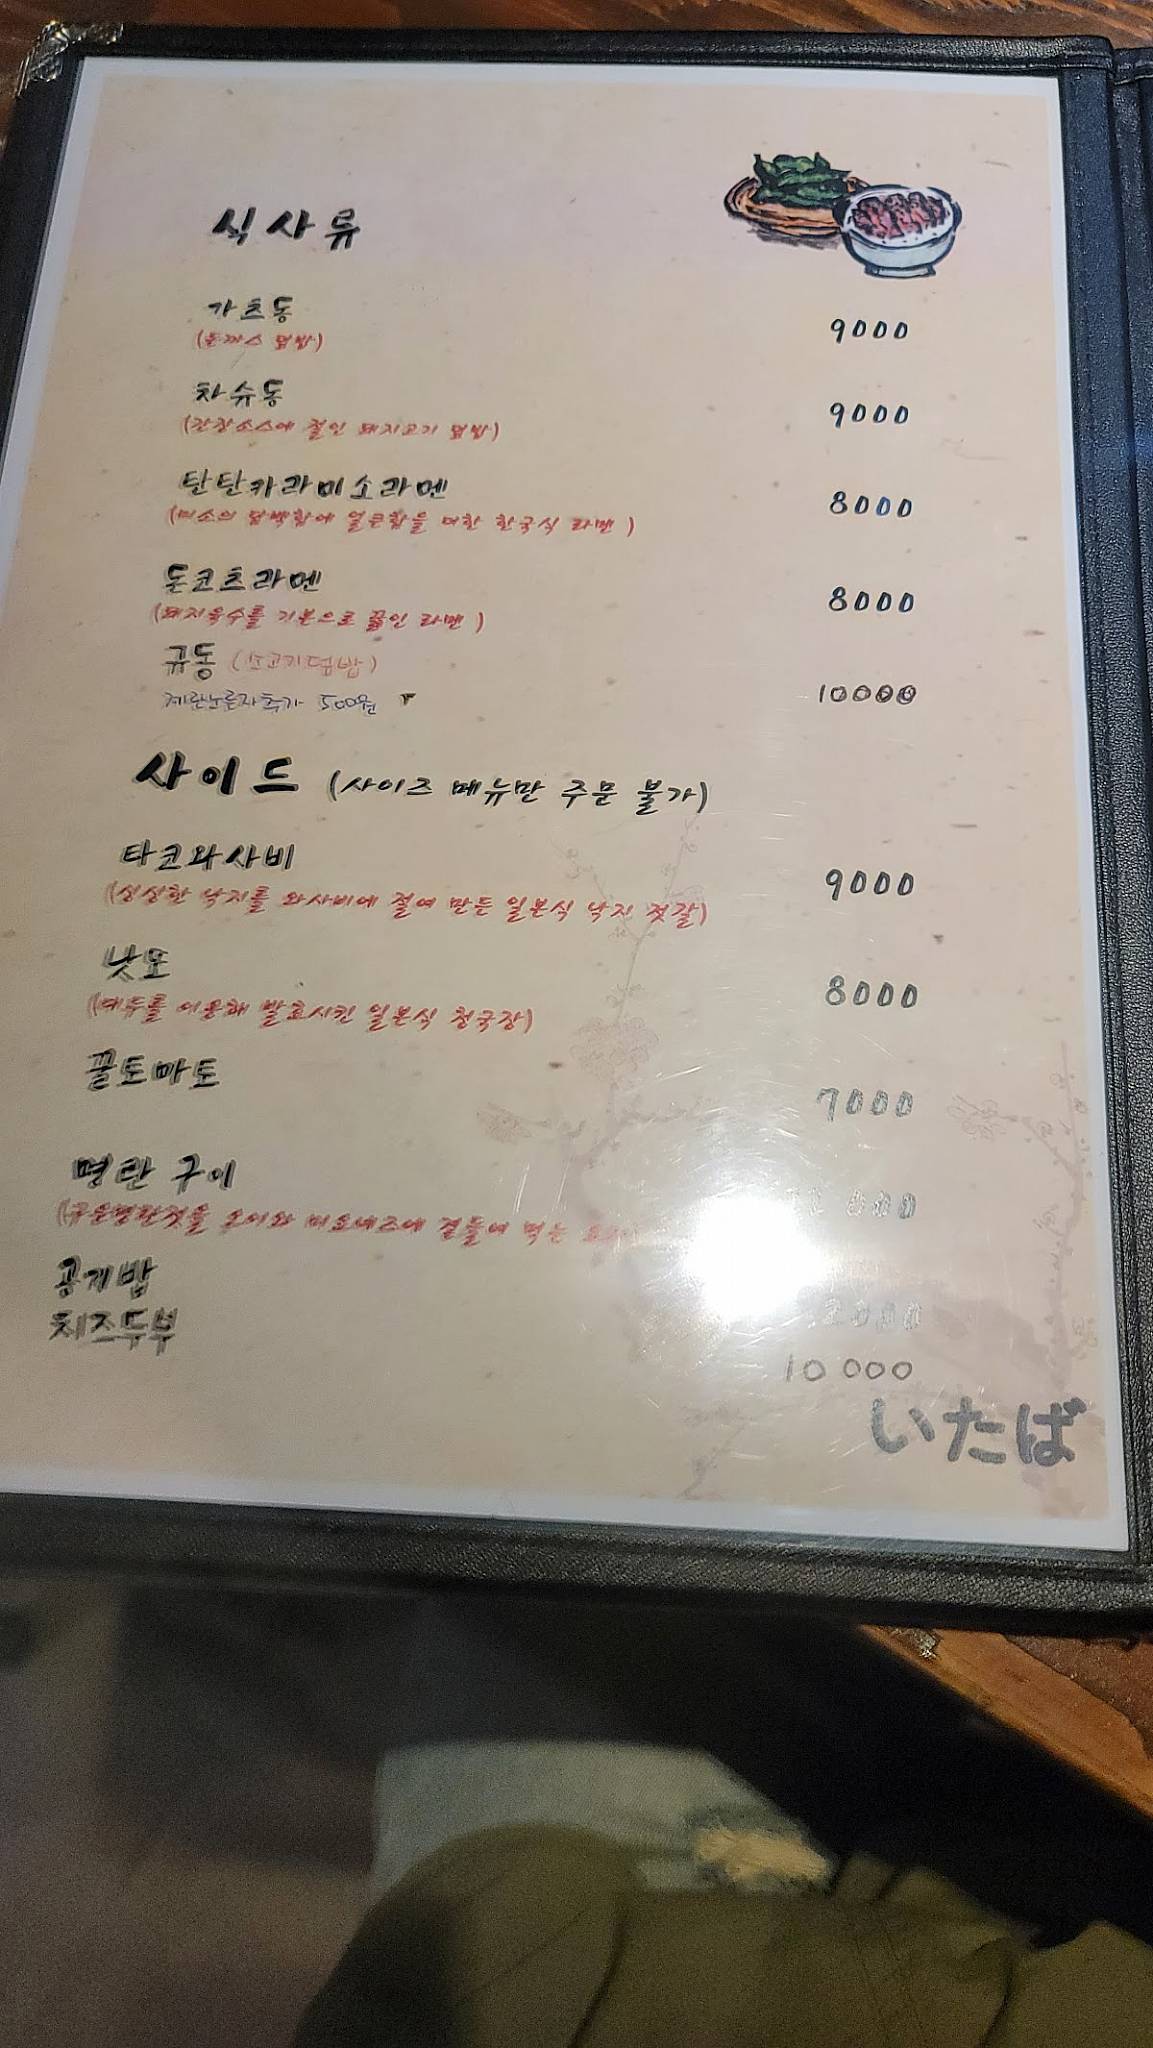 식사류
가츠동
9000
(돈까스 덮밥)
차슈동
9000
(간장소스에 절인 돼지고기 덮밥)
탄탄카라미소라멘
8000
(미소의 담백함에 얼큰함을 더한 한국식 라멘)
돈코츠라멘
8000
(돼지육수를 기본으로 끓인 라멘)
규동 (소고기덮밥)
10000
계란노른자추가 500원
사이드 (사이즈 메뉴만 주문 불가)
타코와사비
9000
(싱싱한 낙지를 와사비에 절여 만든 일본식 낙지 젓갈)
낫또
8000
(메두를 이용해 발효시킨 일본식 청국장)
꿀토마토
7000
명란 구이
000
(구운명란젓을 오이와 마요네즈에 곁들여 먹는
공기밥
2000
치즈두부
10000
いたば